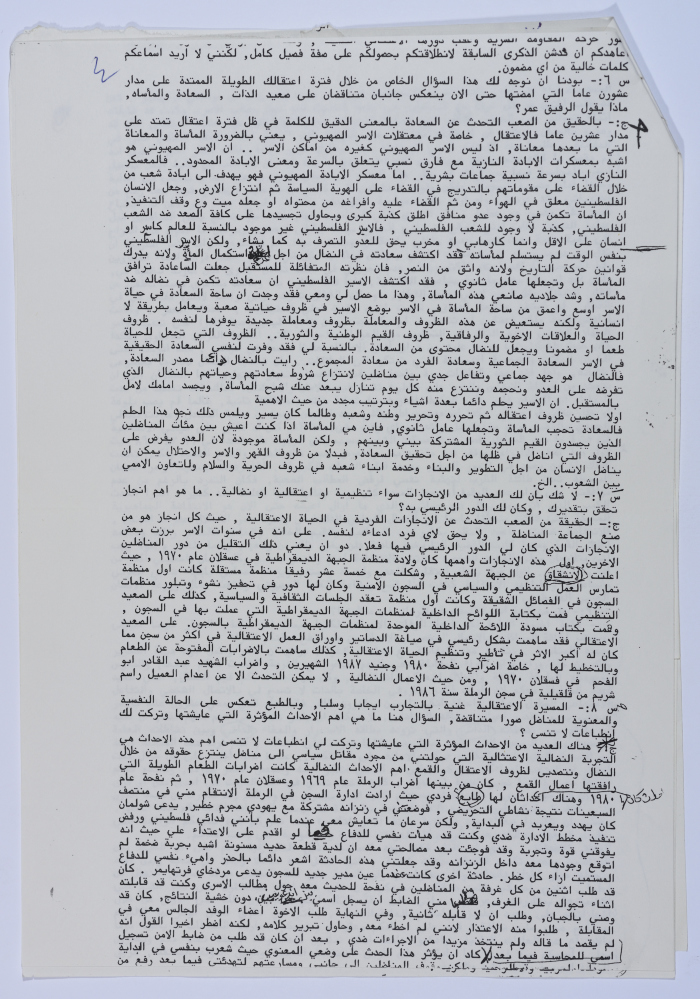 عاهدكم ان ندشن الذكرى السابقة لانطلاقتكم بحصولكم على صفة فصيل كامل, لكنني لا أريد اسماعكم
كلمات خالية من اي مضمون.
س ٦:- بودنا أن نوجه لك هذا السؤال الخاص من خلال فترة اعتقالك الطويلة الممتدة على مدار
عشرون عاما التي امضتها حتى الان ينعكس جانبان متناقضان على صعيد الذات , السعادة والمأساه,
ماذا يقول الرفيق عمر؟
ج:- بالحقيق من الصعب التحدث عن السعادة بالمعنى الدقيق للكلمة في ظل فترة اعتقال تمتد على
مدار عشرين عاما فالاعتقال , خاصة في معتقلات الاسر الصهيوني , يعني بالضرورة المأساة والمعاناة
التي ما بعدها معاناة, اذ ليس الاسر الصهيوني كغيره من اماكن الاسر .. ان الاسر الصهيوني هو
اشبه بمعسكرات الابادة النازية مع فارق نسبي يتعلق بالسرعة ومعنى الابادة المحدود.. فالمعسكر
النازي اباد بسرعة نسبية جماعات بشرية.. اما معسكر الابادة الصهيوني فهو يهدف الى ابادة شعب من
خلال القضاء على مقوماتهم بالتدريج في القضاء على الهوية السياسة ثم انتزاع الارض, وجعل الانسان
الفلسطينين معلق في الهواء ومن ثم القضاء عليه وافراغه من محتواه او جعله ميت وع وقف التنفيذ,
ان المأساة تكمن في وجود عدو منافق اطلق كذبة كبرى ويحاول تجسيدها على كافة الصعد ضد الشعب
الفلسطيني, كذبة لا وجود للشعب الفلسطيني , فالاسر الفلسطيني غير موجود بالنسبة للعالم كاسر او
انسان على الاقل وانما كارهابي او مخرب يحق للعدو التصرف به كما يشاء, ولكن الاسر الفلسطيني
بنفس الوقت لم يستسلم لمأساته فقد اكتشف سعادته في النضال من اجل استكمال المأة ولانه يدرك
قوانين حركة التاريخ ولانه واثق من النصر, فان نظرته المتفائلة للمستقبل جعلت الساعادة ترافق
المأساة بل وتجعلها عامل ثانوي , فقد اكتشف الاسير الفلسطيني ان سعادته تكمن في نضاله ضد
مأساته, وشد جلاديه صانعي هذه المأساة, وهذا ما حصل لي ومعي فقد وجدت ان ساحة السعادة في حياة
الاسر اوسع واعمق من ساحة المأساة في الاسر بوضع الاسير في ظروف حياتية صعبة ويعامل بطريقة لا
انسانية ولكنه يستعيض عن هذه الظروف والمعاملة بظروف ومعاملة جديدة يوفرها لنفسه . ظروف
الحياة والعلاقات الاخوية والرفاقية, ظروف القيم الوطنية والثورية.. الظروف التي تجعل للحياة
طعما او مضمونا ويجعل للنضال محتوى من السعادة. بالنسبة لي فقد وفرت لنفسي السعادة الحقيقية
في الاسر السعادة الجماعية وسعادة الفرد من سعادة المجموع.. رايت بالنضال دائما مصدر السعادة,
فالنضال هو جهد جماعي وتفاعل جدي بين مناضلين لانتزاع شروط سعادتهم وحياتهم بالنضال الذي
تفرضه على العدو ونحجمه وننتزع منه كل يوم تنازل يبعد عنك شبح المأساة, ويجسد امامك لامل
بالمستقبل. ان الاسير يحلم دائما بعدة اشياء وبترتيب مجدد من حيث الاهمية
اولا تحسين ظروف اعتقاله ثم تحرره وتحرير وطنه وشعبه وطالما كان يسير ويلمس ذلك نحو هذا الطم
فالسعادة تحجب المأساة وتجعلها عامل ثانوي, فاين هي المأساة اذا كنت اعيش بين مئات المناضلين
الذين يجسدون القيم الثورية المشتركة بيني وبينهم , ولكن المأساة موجودة لان العدو يفرض على
الظروف التي اناضل في ظلها من اجل تحقيق السعادة, فبدلا من ظروف القهر والاسر والاحتلال يمكن ان
يناضل الانسان من اجل التطوير والبناء وخدمة ابناء شعبه في ظروف الحرية والسلام ولتعاون الاممي
بين الشعوب..الخ.
س ٧:- لا شك بان لك العديد من الانجازات سواء تنظيمية او اعتقالية او نضالية.. ما هو اهم انجاز
تحقق بتقديرك , وكان لك الدور الرئيسي به؟
ج:- الحقيقة من الصعب التحدث عن الانجازات الفردية في الحياة الاعتقالية , حيث كل انجاز هو من
صنع الجماعة المناضلة , ولا يحق لاي فرد ادعاءه لنفسه. على انه في سنوات الاسر برزت بعض
الانجازات الذي كان لي الدور الرئيسي فيها فعلا. دو ان يعني ذلك التقليل من دور المناضلين
الاخرين, اول هذه الانجازات واهمها كان ولادة منظمة الجبهة الديمقراطية في عسقلان عام ١٩٧٠ , حيث
اعلنت الانشقاق عن الجبهة الشعبية, وشكلت مع خمسة عشر رفيقا منظمة مستقلة كانت اول منظمة
تمارس العمل التنظيمي والسياسي في السجون الامنية وكان لها دور في تحفيز نشوء وتبلور منظمات
السجون في الفصائل الشقيقة وكانت اول منظمة تعقد الجلسات الثقافية والسياسية, كذلك على الصعيد
التنظيمي قمت بكتابة اللوائح الداخلية لمنظمات الجبهة الديمقراطية التي عملت بها في السجون ,
وقمت بكتاب مسودة اللائحة الداخلية الموحدة لمنظمات الجبهة الديمقراطية بالسجون. على الصعيد
الاعتقالي فقد ساهمت بشكل رئيسي في صياغة الدساتير واوراق العمل الاعتقالية في اكثر من سجن مما
كان له اكبر الاثر في تأطير وتنظيم الحياة الاعتقالية, كذلك ساهمت بالاضرابات المفتوحة عن الطعام
وبالتخطيط لها , خاصة اضرابي نفحة ١٩٨٠ وجنيد ١٩٨٧ الشهيرين , واضراب الشهيد عبد القادر ابو
الفحم في فسقلان ١٩٧٠ , ومن حيث الاعمال النضالية , لا يمكن التحدث الا عن اعدام العميل راسم
شريم من قلقيلية في سجن الرملة سنة ١٩٨٦ .
س ٨:- المسيرة الاعتقالية غنية بالتجارب ايجابا وسلبا, وبالطبع تعكس على الحالة النفسية
والمعنوية للمناضل صورا متناقضة, السؤال هنا ما هي اهم الاحداث المؤثرة التي عايشتها وتركت لك
انطباعات لا تنسى ؟
ج:- هناك العديد من الاحداث المؤثرة التي عايشتها وتركت لي انطباعات لا تنسى اهم هذه الاحداث هي
التجربة النضالية الاعتثالية التي حولتني من مجرد مقاتل سياسي الى مناضل ينتزع حقوقه من خلال
النضال ونتصدي لظروف الاعتقال والقمع اهم الاحداث النضالية كانت اضرابات الطعام الطويلة التي
رافقتها اعمال القمع , كان من بينها اضراب الرملة عام ١٩٦٩ وعسقلان عام ١٩٧٠ , ثم نفحة عام
١٩٨٠ وهناك احداثان لها طابع فردي حيث ارادت ادارة السجن في الرملة الانتقام مني في منتصف
السبعينات نتيجة نشاطي التحريضي , فوضعتني في زنزانه مشتركة مع يهودي مجرم خطير, يدعى شولمان
كان يهدد ويعربد في البداية, ولكن سرعان ما تعايش معي عندما علم بأنني فدائي فلسطيني ورفض
تنفيذ مخطط الادارة ضدي وكنت قد هيأت نفسي للدفاع لو اقدم على الاعتداء علي حيث انه
يفوقني قوة وتجربة وقد فوجئت بعد مصالحتي معه ان لدية قطعة حديد مسنونة اشبه بحربة ضخمة لم
اتوقع وجودها معه داخل الزنزانه وقد جعلتني هذه الحادثة اشعر دائما بالحذر واهيء نفسي للدفاع
المستميت ازاء كل خطر. حادثة اخرى كانت عندما عين مدير جديد للسجون يدعى مردخاي فرتهايمر. كان
قد طلب اثنين من كل غرفة من المناضلين في نفحة للحديث معه حول مطالب الاسرى وكنت قد قابلته
اثناء تجواله على الغرف, مني الضابط ان يسجل اسمي دون خشية النتائج, كان قد
وصني بالجبان, وطلب ان لا قابله ثانية, وفي النهاية طلب الاخوة اعضاء الوفد الجالس معي في
المقابلة , طلبوا منه الاعتذار لانني لم اخطء معه, وحاول تبرير كلامه, لكنه اضطر اخيرا القول انه
لم يقصد ما قاله ولم ينتخذ مزيدا من الاجراءات ضدي , بعد ان كان قد طلب من ضابط الامن تسجيل
اسمي للمحاسبة فيما بعد كاد ان يؤثر هذا الحدث على وضعي المعنوي حيث شعرت بنفسي في البداية